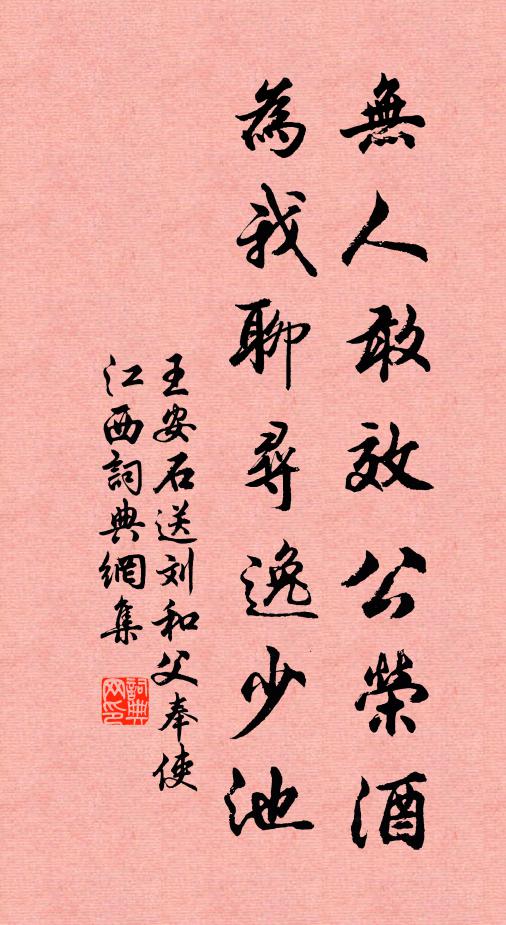 無人敢效公榮酒
為我聊尋逸少池
王安石送刘和父奉使
江西詞典網集
詞典网印